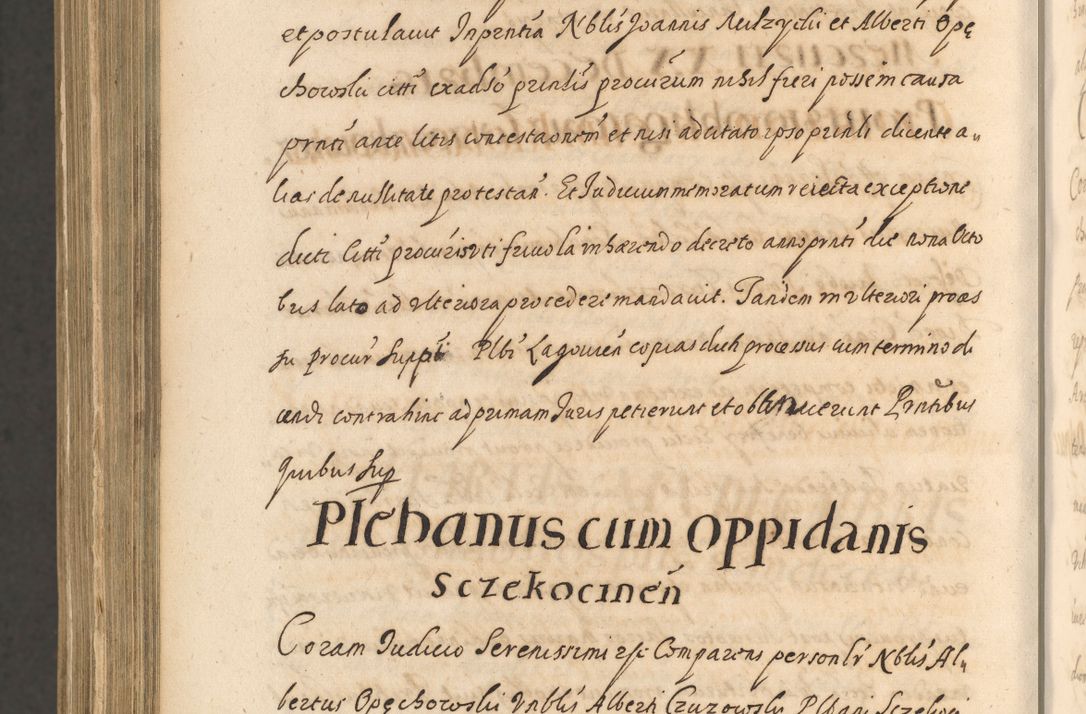 et postulavit In pñtia Nblis Joannis Mulzycki et Alberti Opę
chowski citti ex adso prinlis procurum nihil fieri posse in causa
prnti ante litis contestaonem et nisi ad citato ipso prinli dicente a„
lias de nullitate protestañ. Et Judicium memoratum reiecta exceptione
dicti Citti procuris uti frivola inhærendo decreto anno prnti die nona Octo
bris lato ad ulteriora procedere mandavit. Tandem in ulteriori proces
su procur suppli Plbi Lagovien copias dicti processus cum termino di
cendi contra hinc ad primam Juris petierunt et obtinuerunt Prntibus
quibus sup
Plebanus cum oppidanis
sczekocinen̄
Coram Judicio Serenissimi rsc Comparens personlr Nblis Al„
bertus Opęchowski Vnblis Alberti Czuzowski Plbani Sczekoci